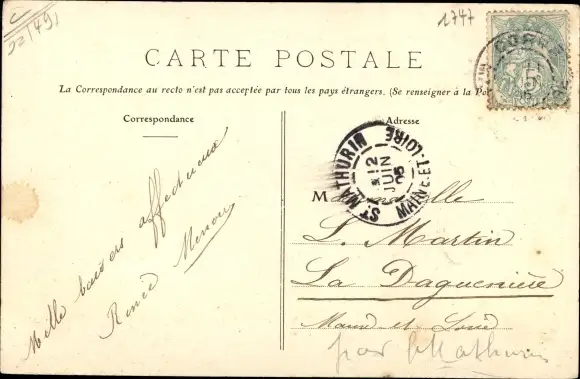 1747
CARTE POSTALE
La Correspondance au recto n'est pas acceptée par tous les pays étrangers. (Se renseigner à la Po
Correspondance
Adresse
Mille baisers affectueux
Renée Menou
ST MATHURIN
MAINE-ET-LOIRE
12
JUIN
05
5
Mademoiselle
L. Martin
La Daguenière
Maine et Loire
par St Mathurin